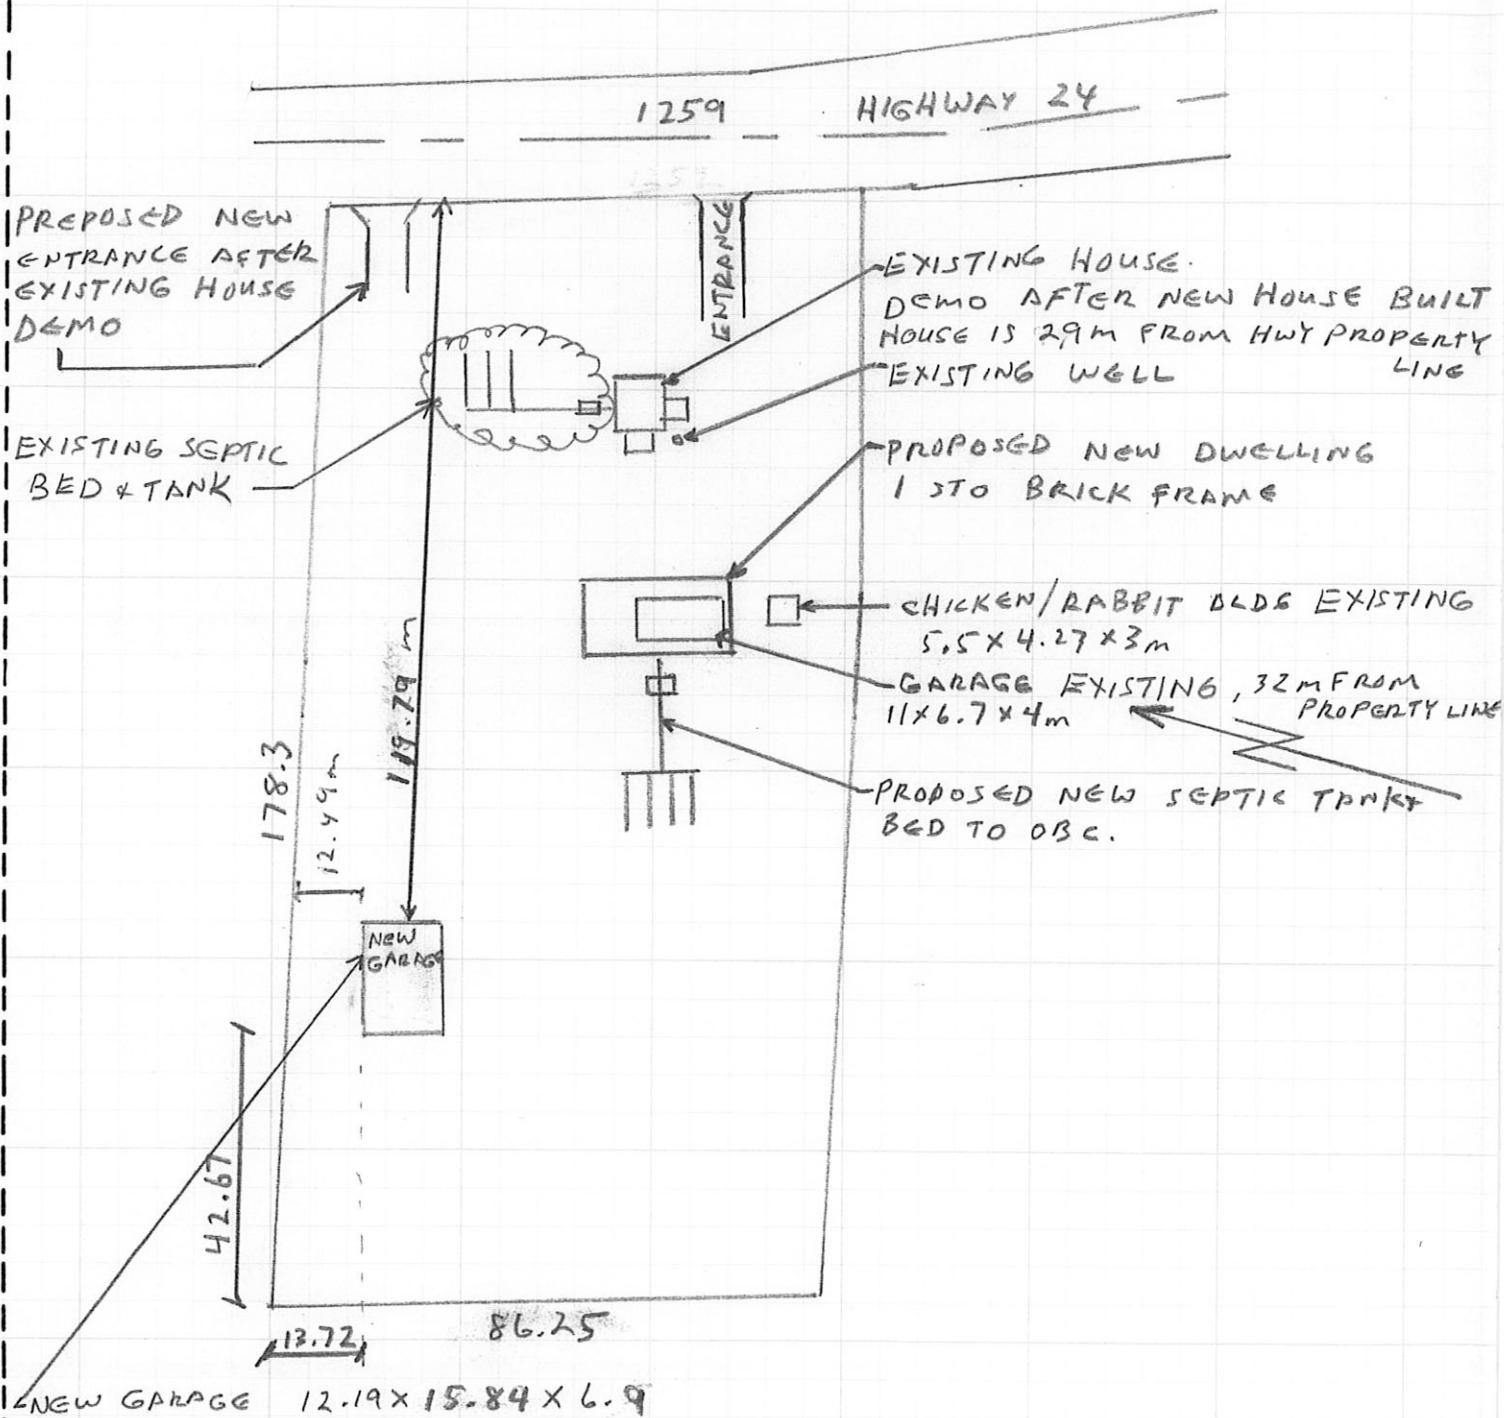 1259 HIGHWAY 24
PREPOSED NEW
ENTRANCE AFTER
EXISTING HOUSE
DEMO
ENTRANCE
EXISTING HOUSE.
DEMO AFTER NEW HOUSE BUILT
HOUSE IS 29m FROM HWY PROPERTY
LINE
EXISTING WELL
EXISTING SEPTIC
BED & TANK
PROPOSED NEW DWELLING
1 STO BRICK FRAME
CHICKEN/RABBIT BLDG EXISTING
5.5 X 4.27 X 3m
GARAGE EXISTING, 32m FROM
PROPERTY LINE
11 X 6.7 X 4m
PROPOSED NEW SEPTIC TANK &
BED TO OBC.
119.79 m
178.3
12.49m
NEW
GARAGE
42.67
13.72
86.25
NEW GARAGE 12.19 X 15.84 X 6.9